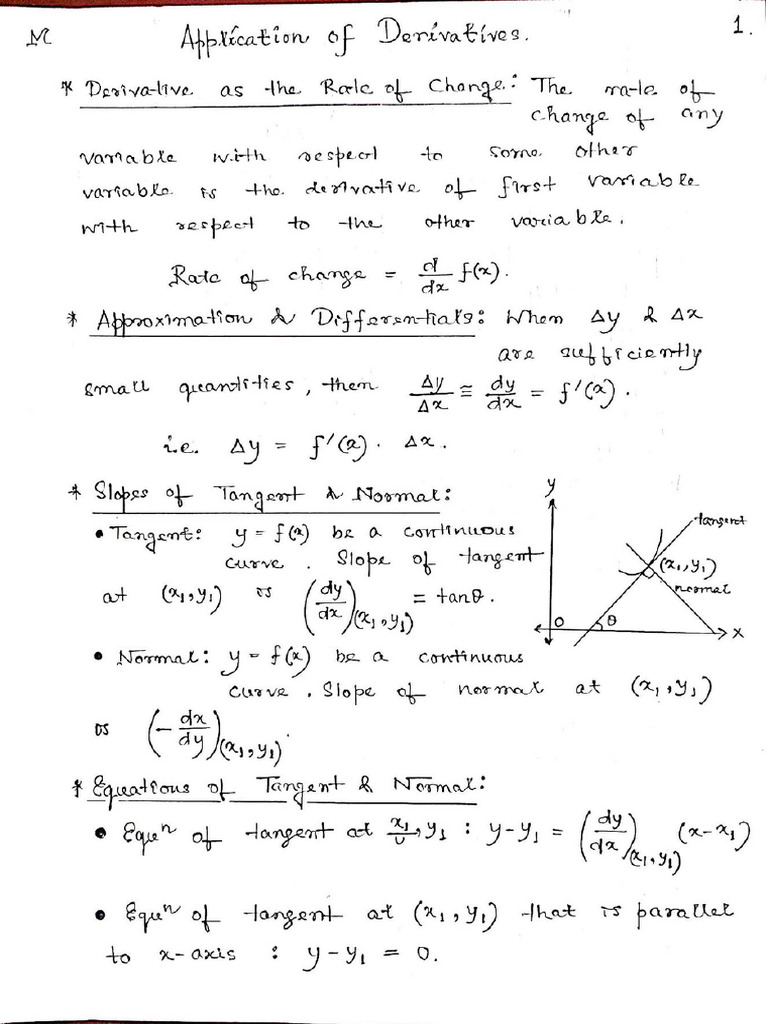 M
Application of Derivatives.
1.
* Derivative as the Rate of Change: The rate of
change of any
variable with respect to some other
variable is the derivative of first variable
with respect to the other variable.
Rate of change = d/dx f(x).
* Approximation & Differentials: When Δy & Δx
are sufficiently
small quantities, then Δy/Δx ≅ dy/dx = f'(x).
i.e. Δy = f'(x). Δx.
* Slopes of Tangent & Normal:
• Tangent: y = f(x) be a continuous
curve. Slope of tangent
at (x₁,y₁) is (dy/dx)(x₁,y₁) = tanθ.
y
tangent
(x₁,y₁)
normal
O
θ
x
• Normal: y = f(x) be a continuous
curve. Slope of normal at (x₁,y₁)
is (-dx/dy)(x₁,y₁).
* Equations of Tangent & Normal:
• Equⁿ of tangent at x₁,y₁ : y-y₁ = (dy/dx)(x₁,y₁) (x-x₁)
• Equⁿ of tangent at (x₁,y₁) that is parallel
to x-axis : y-y₁ = 0.